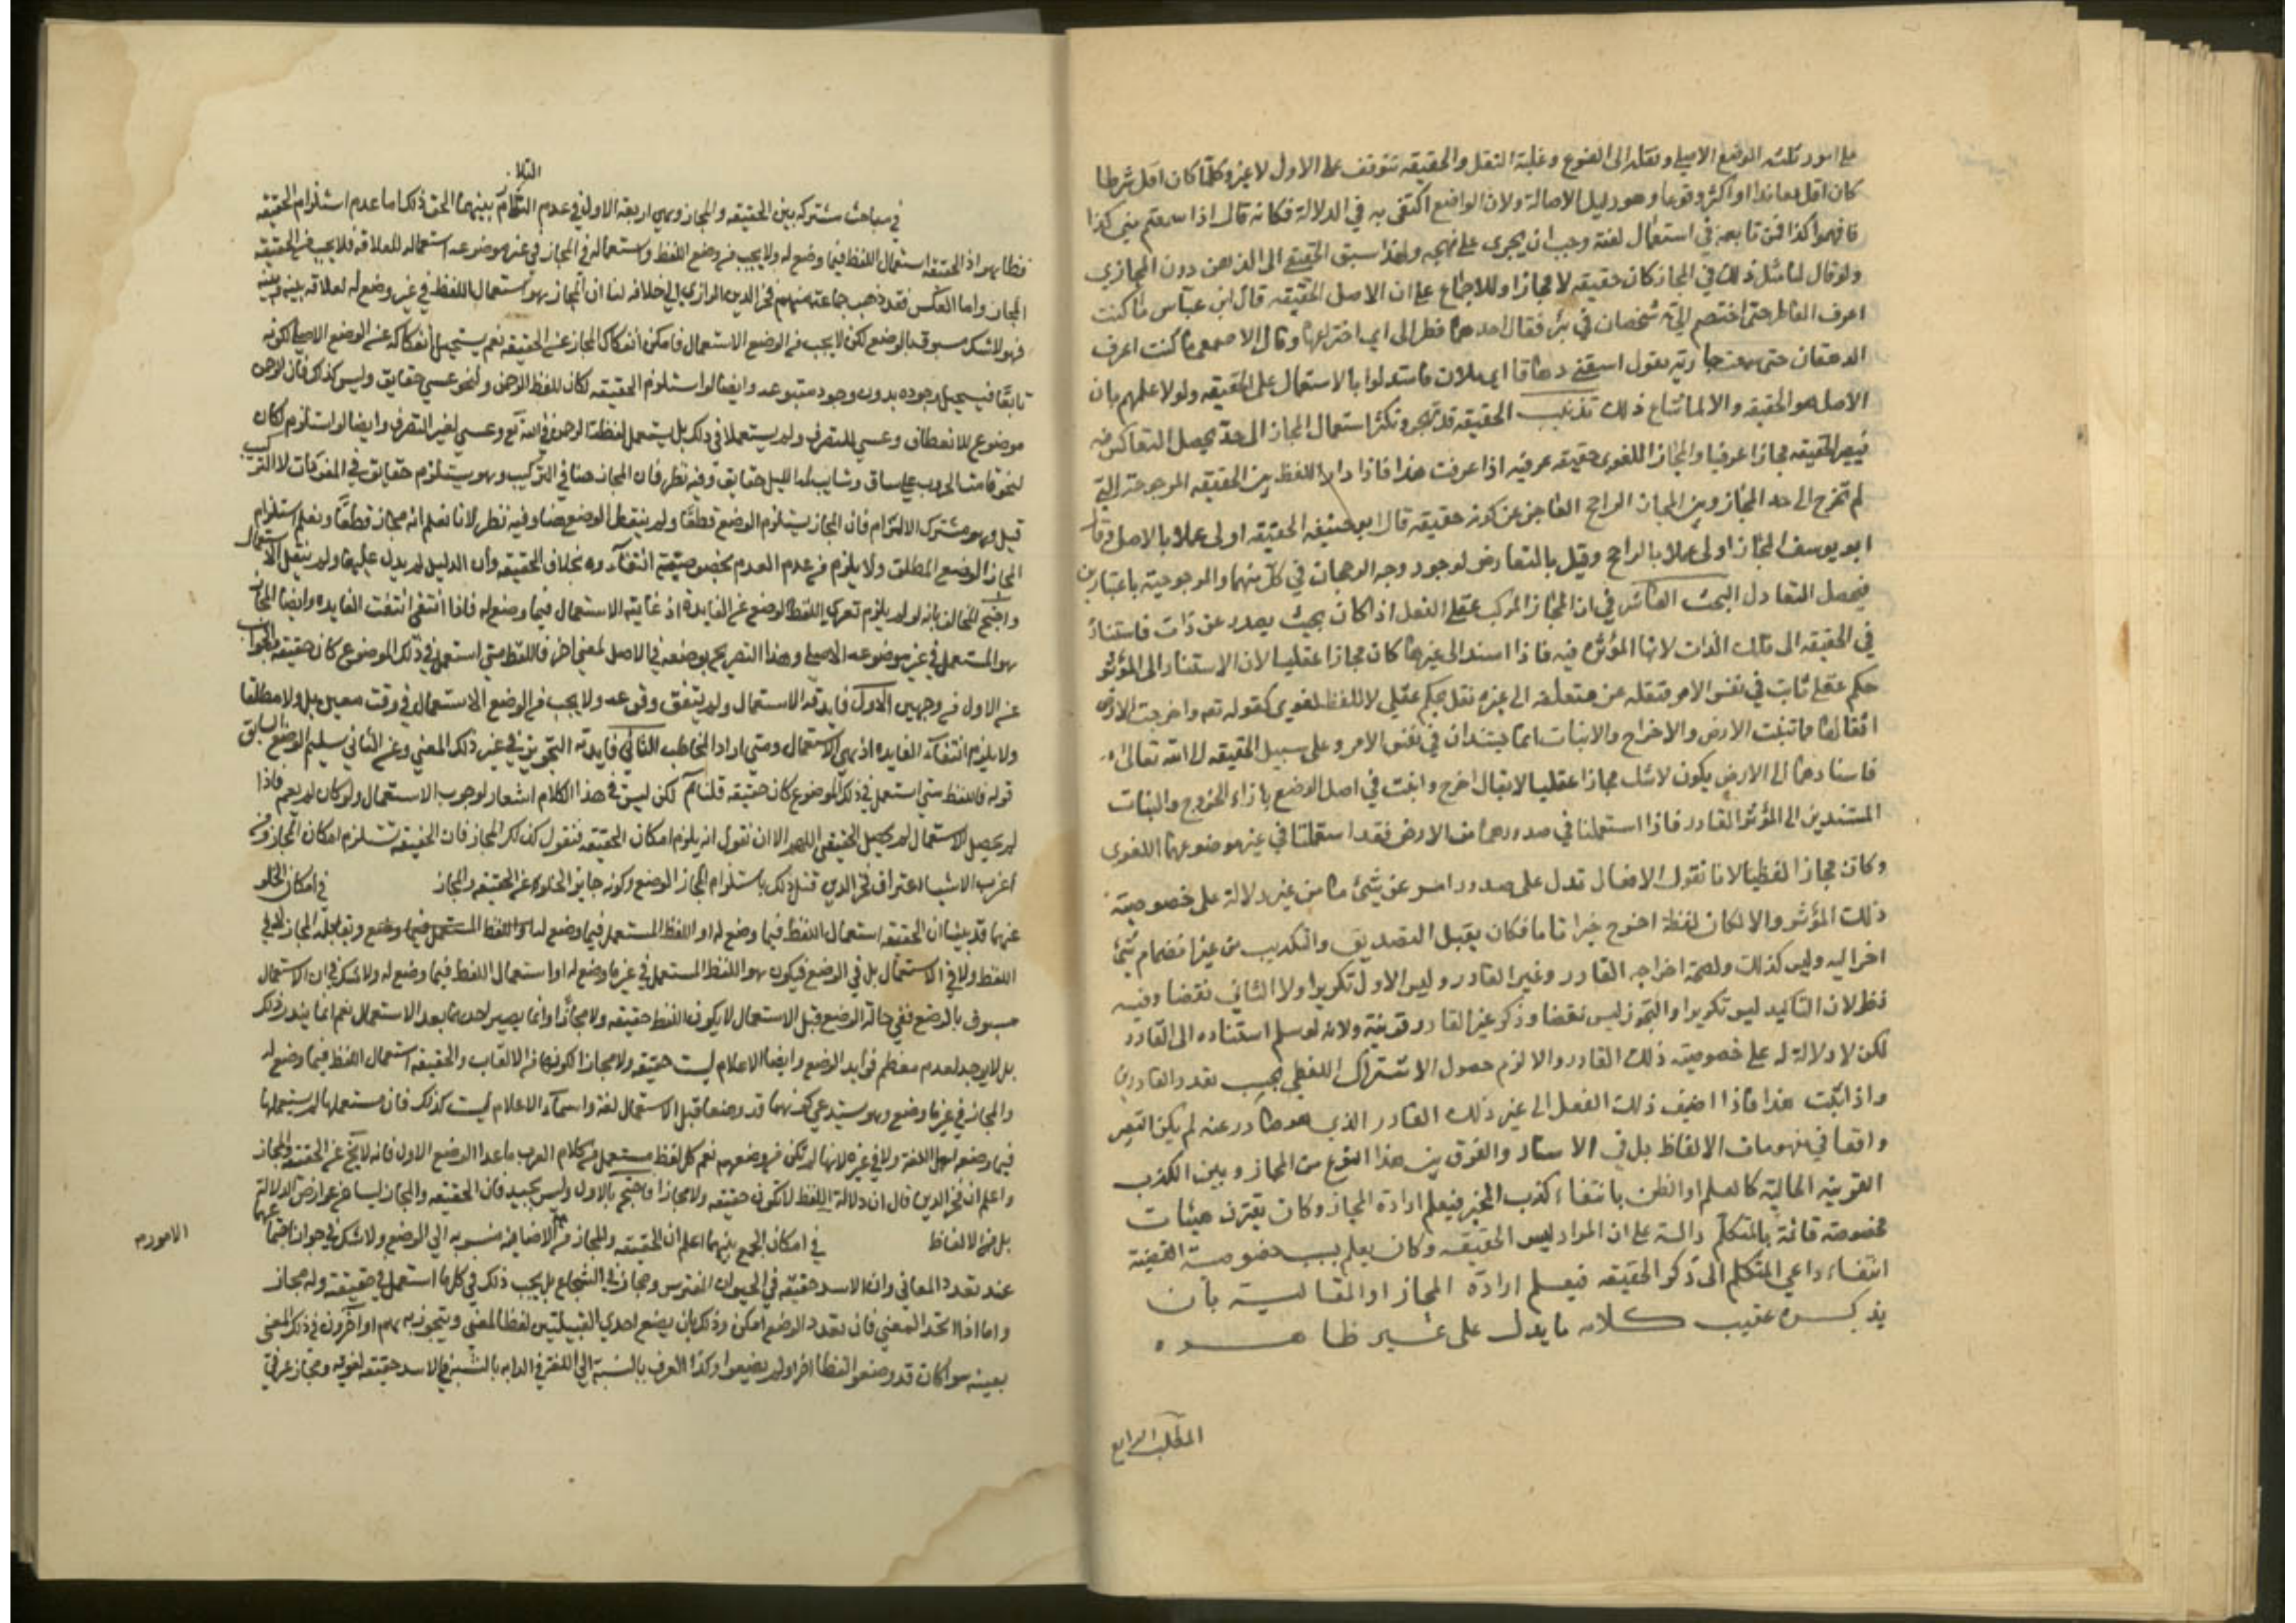 على امور ثلثه الوضع الاصلي ونقله الى الفرع وغلبة النقل والحقيقه تتوقف على الاول لا غير وكلما كان اقل شرطا
كان اقل معاندا او اكثر وقوعا وهو دليل الاصالة ولان الواضع اكتفى به في الدلالة فكانه قال اذا سمعتم مني كذا
فافهموا كذا فمن تابعه في استعمال لغته وجب ان يجري على نهجه ولهذا سبق الحقيقي الى الذهن دون المجازي
ولو قال لنا مثل ذلك في المجاز كان حقيقه لا مجازا وللاجماع على ان الاصل الحقيقه قال ابن عباس ما كنت
اعرف الفاطر حتى اختصم الي شخصان في بئر فقال احدهما فطر الى ابي اي اخترعها وقال الاصمعي ما كنت اعرف
الدهقان حتى سمعت جارية تقول اسقني دهاقا اي ملان فاستدلوا بالاستعمال على الحقيقه ولولا علمهم بان
الاصل هو الحقيقه والا لما شاع ذلك تذنيب الحقيقه قد تهجر وتكثر استعمال المجاز الى حد يحصل التعاكس فيه
فيصير الحقيقه مجازا عرفيا والمجاز اللغوى حقيقه عرفيه اذا عرفت هذا فاذا دار اللفظ بين الحقيقه المرجوحة التي
لم تخرج الى حد المجاز وبين المجاز الراجح العاجز عن كونه حقيقه قال ابو حنيفه الحقيقه اولى عملا بالاصل وقال
ابو يوسف المجاز اولى عملا بالراجح وقيل بالتعارض لوجود وجه الرجحان في كل منهما والمرجوحية باعتبارين
فيحصل التعادل البحث العاشر في ان المجاز المركب عقلي الفعل اذا كان بحيث يصدر عن ذات فاستناد
في الحقيقه الى تلك الذات لانها المؤثره فيه فاذا اسند الى غيرها كان مجازا عقليا لان الاستناد الى المؤثر
حكم عقلي ثابت في نفس الامر فنقله عن متعلقه الى غيره نقل لحكم عقلي لا للفظ لغوى كقوله تعه واخرجت الارض
اثقالها فاتنبت الارض والاخراج والانبات انما يستندان في نفس الامر وعلى سبيل الحقيقه الى الله تعالى
فاسنادهما الى الارض يكون لاشك مجازا عقليا لا يقال اخرج وانبت في اصل الوضع بازاء الخروج والنبات
المستندين الى المؤثر القادر فاذا استعملنا في صدورهما من الارض فقد استعملتا في غير موضوعهما اللغوى
وكانن مجازا لفظيا لانا نقول الافعال تدل على صدور امر عن شئ ما من غير دلالة على خصوصية
ذلك المؤثر والا لكان لفظة اخرج خبرا تاما فكان يقبل التصديق والتكذيب من غير انضمام شئ
اخر اليه وليس كذلك ولصحة اخراجه القادر وغير القادر وليس الاول تكريرا ولا الثاني نقضا وفيه
نظر لان التاكيد ليس تكريرا والتجوز ليس نقضا وذكر غير القادر قرينة ولانه لو سلم استناده الى القادر
لكن لا دلالة له على خصوصية ذلك القادر والا لزم حصول الاشتراك اللفظي بحسب تعدد القادرين
واذا ثبت هذا فاذا اضيف ذلك الفعل الى غير ذلك القادر الذي هو صادر عنه لم يكن التغير
واقعا في مفهومات الالفاظ بل في الاسناد والفرق بين هذا النوع من المجاز وبين الكذب
القرينه الحالية كالعلم او الظن بانتفاء كذب المخبر فيعلم ارادة المجاز وكان يقترن هيئات
مخصوصة قائمة بالمتكلم دالة على ان المراد ليس الحقيقه وكان يعلم بسبب خصوصية القضية
انتفاء داعي المتكلم الى ذكر الحقيقه فيعلم ارادة المجاز او المقالية بان
يذكر عقيب كلامه ما يدل على غير ظاهره
المطلب الرابع
في مباحث مشتركه بين الحقيقه والمجاز وهي اربعه الاول في عدم التلازم بينهما الحق ذلك اما عدم استلزام الحقيقه
فظاهر اذ الحقيقه استعمال اللفظ فيما وضع له ولا يجب من وضع اللفظ واستعماله في المجاز في غير موضوعه استعماله للعلاقه فلا يجب من الحقيقه
المجاز واما العكس فقد ذهب جماعة منهم فخر الدين الرازي الى خلافه لنا ان المجاز هو استعمال اللفظ في غير وضع له لعلاقه بينه وبينه
فهو لا شك مسبوق بالوضع لكن لا يجب من الوضع الاستعمال فامكن انفكاك المجاز عن الحقيقه نعم يستحيل انفكاكه عن الوضع الاصلي لكونه
تابعا فيستحيل وجوده بدون وجود متبوعه وايضا لو استلزم الحقيقه لكان للفظ الرحمن ولنحو عسى حقايق وليس كذلك فان الرحمن
موضوع للانعطاف وعسى للتصرف ولم يستعملا في ذلك بل يستعمل لفظة الرحمن في الله تع وعسى لغير التصرف وايضا لو استلزم لكان
لنحو قامت الحرب على ساق وشابت لمة الليل حقايق وفيه نظر فان المجاز هنا في التركيب وهو يستلزم حقايق في المفردات لا التركيب
قيل وهو مشترك الالتزام فان المجاز يستلزم الوضع قطعا ولم ينتقل الوضع هنا وفيه نظر لانا نعلم انه مجاز قطعا ونعلم استلزام
المجاز الوضع المطلق ولا يلزم من عدم العدم بخصوصيته انتفاءه بخلاف الحقيقه وان الدليل لم يدل عليها ولم ينقل الاستعمال
واحتج المخالف بانه لو لم يلزم تعرى اللفظ الوضع عن الفايدة اذ غايته الاستعمال فيما وضع له فاذا انتفى انتفت الفايده وايضا المجاز
هو المستعمل في غير موضوعه الاصلي وهذا التصريح بوضعه في الاصل لمعنى اخر فاللفظ متى استعمل في ذلك الموضوع كان حقيقه والجواب
عن الاول من وجهين الاول فايدته الاستعمال ولم يتفق وقوعه ولا يجب من الوضع الاستعمال في وقت معين بل ولا مطلقا
ولا يلزم انتفاء الفايده اذ هي الاستعمال ومتى اراد المخاطب الثاني فايدته التجويز في غير ذلك المعنى وعن الثاني تسليم الوضع السابق
قوله فاللفظ متى استعمل في ذلك الموضوع كان حقيقه قلنا نعم لكن ليس في هذا الكلام اشعار لوجوب الاستعمال ولو كان لم يعم فاذا
لم يحصل الاستعمال لم يحصل الحقيقه اللهم الا ان نقول انه يلزم امكان الحقيقه فنقول كذلك المجاز فان الحقيقه تستلزم امكان المجاز ومن
اغرب الاشيا اعتراف فخر الدين قبل ذلك باستلزام المجاز الوضع وكونه جايز الخلو عن الحقيقه والمجاز في امكان الخلو
عنهما قد بينا ان الحقيقه استعمال اللفظ فيما وضع له او اللفظ المستعمل فيما وضع له
اللفظ ولا في الاستعمال بل في الوضع فيكون هو اللفظ المستعمل في غير ما وضع له او استعمال اللفظ فيما وضع له ولا شك في ان الاستعمال
مسبوق بالوضع ففي حالة الوضع قبل الاستعمال لا يكون اللفظ حقيقه ولا مجازا وانما يصير احدهما بعد الاستعمال نعم انما يندر ذلك
بل لا يوجد لعدم معظم فوايد الوضع وايضا الاعلام ليست حقيقه ولا مجازا لكونها من الالقاب والحقيقه استعمال اللفظ فيما وضع له
والمجاز في غير ما وضع وهو يستدعي كونهما قد وضعا قبل الاستعمال لغة واسماء الاعلام ليست كذلك فان مستعملها لم يستعملها
فيما وضعه اهل اللغة ولا في غيره لانها لم تكن من وضعهم نعم كل لفظ مستعمل من كلام العرب ما عدا الوضع الاول فانه لا يخ عن الحقيقه والمجاز
واعلم ان فخر الدين قال ان دلالة اللفظ لا تكون حقيقه ولا مجازا فاحتج بالاول وليس بجيد فان الحقيقه والمجاز ليسا من عوارض الدلالة
بل من الالفاظ في امكان الجمع بينهما اعلم ان الحقيقه والمجاز من الامور الاضافيه منسوبه الى الوضع ولا شك في جواز اجتماعهما
عند تعدد المعاني وان الاسد حقيقه في الحيوان المفترس ومجاز في الشجاع بل يجب ذلك في كل ما استعمل في حقيقة وله مجاز
واما اذا اتحد المعنى فان تعدد الوضع امكن وذلك بان يضع احدى القبيلتين لفظا لمعنى ويتجوز به او اخرون في ذلك المعنى
بعينه سوا كانت قد وضعوا لفظا اخر او لم يضعوا وكذا العرف بالنسبة الى اللغه في الدابه بالنسبة الى الاسد حقيقه لغويه ومجاز عرفي